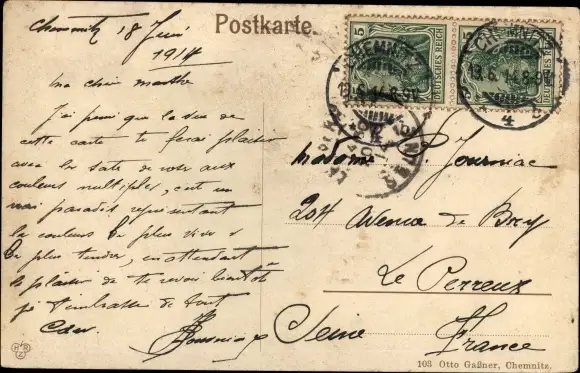 Postkarte
Chemnitz 18 Juni
1914
ma chère marthe
J'ai pensé que la vue de
cette carte te ferai plaisir
avec la sate de roses aux
couleurs multiples, c'est un
vrai paradis représentant
la couleurs la plus vive &
la plus tendre, en attendant
le plaisir de te revoir bientôt
je t'embrasse de tout
Cœur
Journiac
5 DEUTSCHES REICH
5 DEUTSCHES REICH
CHEMNITZ
18.6.14.8-9V.
CHEMNITZ
18.6.14.8-9V.
4
madame P. Journiac
204 Avenue de Bry
Le Perreux
Seine France
103 Otto Gaßner, Chemnitz.